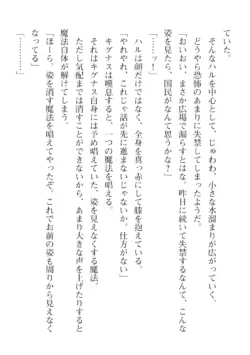 ていた。
そんなハルを中心として、じゅわわ、小さな水溜まりが広がっていく。
どうやら恐怖のあまりに失禁してしまったらしい。
「おいおい、まさか広場で漏らすとはな、昨日に続いて失禁するなんて、こんな
姿を見たら、国民がなんて思うかな？」
「……ッ！」
ハルは顔だけではなく、全身を真っ赤にして膝を抱えている。
「やれやれ、これじゃ話が先に進まないじゃないか。仕方がない」
キグナスは嘆息すると、一つの魔法を唱える。
それはキグナス自身には予め唱えていた、姿を見えなくする魔法。
ただし気配までは消すことができないから、あまり大きな声を上げたりすると
魔法自体が解けてしまう。
「ほーら、姿を消す魔法を唱えてやったぞ、これでお前の姿も周りから見えなく
なってる」